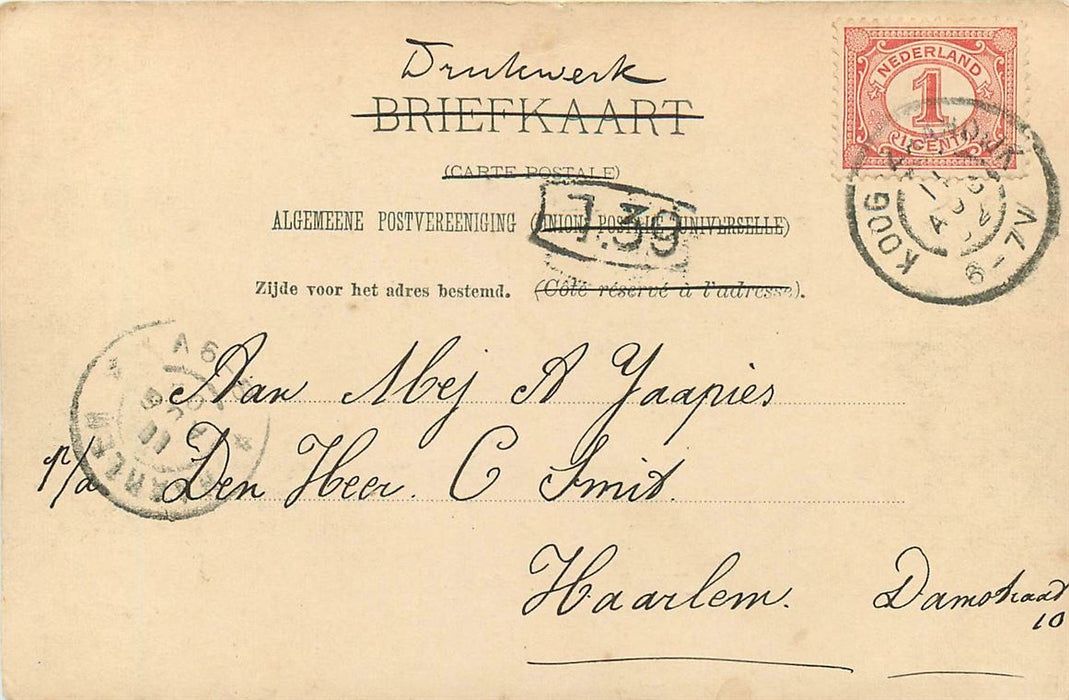 Drukwerk
BRIEFKAART
(CARTE POSTALE)
ALGEMEENE POSTVEREENIGING (UNION POSTALE UNIVERSELLE)
Zijde voor het adres bestemd. (Côté réservé à l'adresse).
NEDERLAND
1
1 CENT
KOOG
6-7V
7.39
HAARLEM
Aan Mej A Yaapies
p/a Den Heer. C Smit.
Haarlem. Damstraat
10